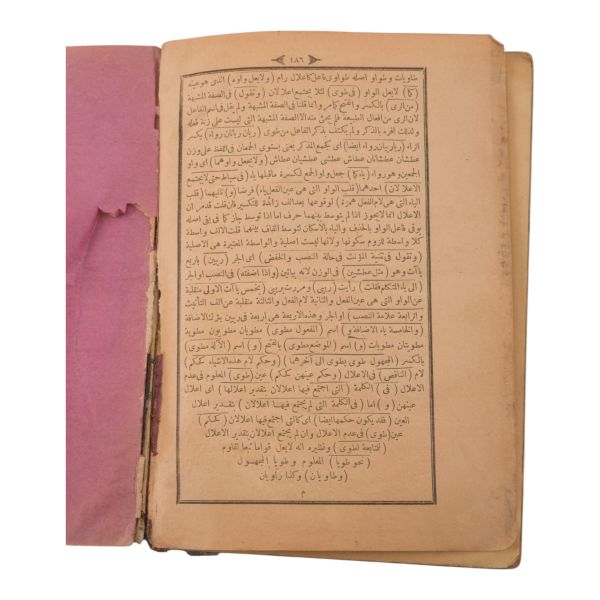 ١٨٦
طاويات وطواو اصله طواوى فاعل كاعلال رام (ولايعل واوه) الذى هو عينه
(كما) لايعل الواو (فى طوى) لئلا يجتمع اعلالان (وتقول) فى الصفة المشبهة
(من الرى) بالكسر والفتح كما مر وانما قلنا فى الصفة المشبهة ولم يقل فى اسم الفاعل
لان الرى من افعال الطبيعة فلم يجئ منه الا الصفة المشبهة التى ليست على زنة فعله
ولذلك افرد بالذكر ولم يكتف بذكر الفاعل من طوى (ريان ريانان رواء) بكسر
الراء (ريا رييان رواء ايضا) اى كجمع المذكر يعنى يستوى الجمعان فى اللفظ على وزن
عطشان عطشانان عطاش عطشى عطشيان عطاش (ولا يجعل واوهما) اى واو
الجمعين وهو رواء (ياء كما) جعل واو الجمع لكسرة ماقبلها ياء (فى سياط حتى لا يجتمع
الاعلالان) احدهما (قلب الواو التى هى عين الفعل ياء) فرضا (و) ثانيهما (قلب
الياء التى هى لام الفعل همزة) لوقوعها بعد الف زائدة للتكسير فان قلت قد مر ان
الاعلال انما لايجوز اذا لم يتوسط بينهما حرف اما اذا توسط جاز كما فى يقى اصله
يوقى فاعل الواو بالحذف والياء بالاسكان لتوسط القاف بينهما قلت الالف واسطة
كلا واسطة للزوم سكونها ولانها ليست اصلية والواسطة المعتبرة هى الاصلية
(وتقول فى تثنية المؤنث فى حالة النصب والخفض) اى الجر (رييين) باربع
يا آت وهو (مثل عطشيين) فى الوزن لانه يبائين (واذا اضفته) فى النصب او الجر
(الى ياء المتكلم فقلت) رأيت (رييى) ومررت برييى (بخمس يا آت الاولى منقلبة
عن الواو التى هى عين الفعل والثانية لام الفعل والثالثة منقلبة عن الف التأنيث
والرابعة علامة النصب) او الجر وهذه الاربعة هى اربعة فى رييين بترك الاضافة
(والخامسة ياء الاضافة و) اسم (المفعول مطوى) مطويان مطويون مطوية
مطويتان مطويات (و) اسم (الموضع مطوى) بالفتح (و) اسم (الآلة مطوى)
بالكسر (المجهول طوى يطوى الى آخرهما) (وحكم لام هذه الاشياء كحكم)
لام (الناقص) فى الاعلال (وحكم عينهن كحكم) عين (طوى) المعلوم فى عدم
الاعلال (فى) الكلمة (التى اجتمع فيها اعلالان بتقدير اعلالها) اى اعلال
عينهن (و) اما (فى الكلمة التى لم يجتمع فيها اعلالان) بتقدير اعلال
العين (فقد يكون حكمها ايضا) اى كالتى اجتمع فيها اعلالان (كحكم)
عين (طوى) فى عدم الاعلال وان لم يجتمع اعلالان بتقدير الاعلال
(للمتابعة لطوى) ونظيره انه لايعل قواما تبعا لقاوم
(نحو طويا) المعلوم وطويا المجهول
(وطاويان) وكذا راويان
م